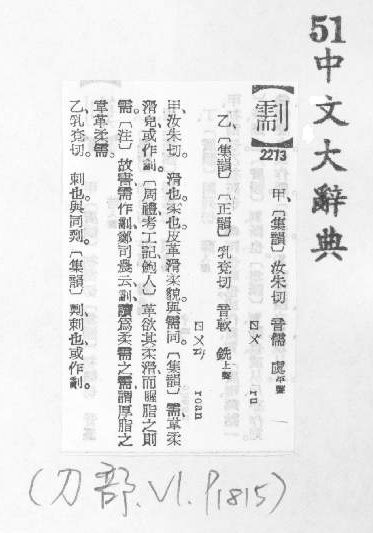 51中文大辭典
【】
2213
甲、〔集韻〕汝朱切 音儒 虞平聲
ㄖㄨ
乙、〔集韻〕〔正韻〕乳兗切 音軟 銑上聲
ㄖㄨㄢ roan
甲汝朱切。滑也。柔也。皮革滑柔貌。與需同。〔集韻〕需、韋柔
滑皃。或作。〔周禮、考工記、鮑人〕革欲其柔滑、而腥脂之則
需。〔注〕故書需作、鄭司農云、讀爲柔需之需、謂厚脂之
韋革柔需。
乙乳兗切。刺也。與同。〔集韻〕刺也、或作。
(刀部.VI.P1815)